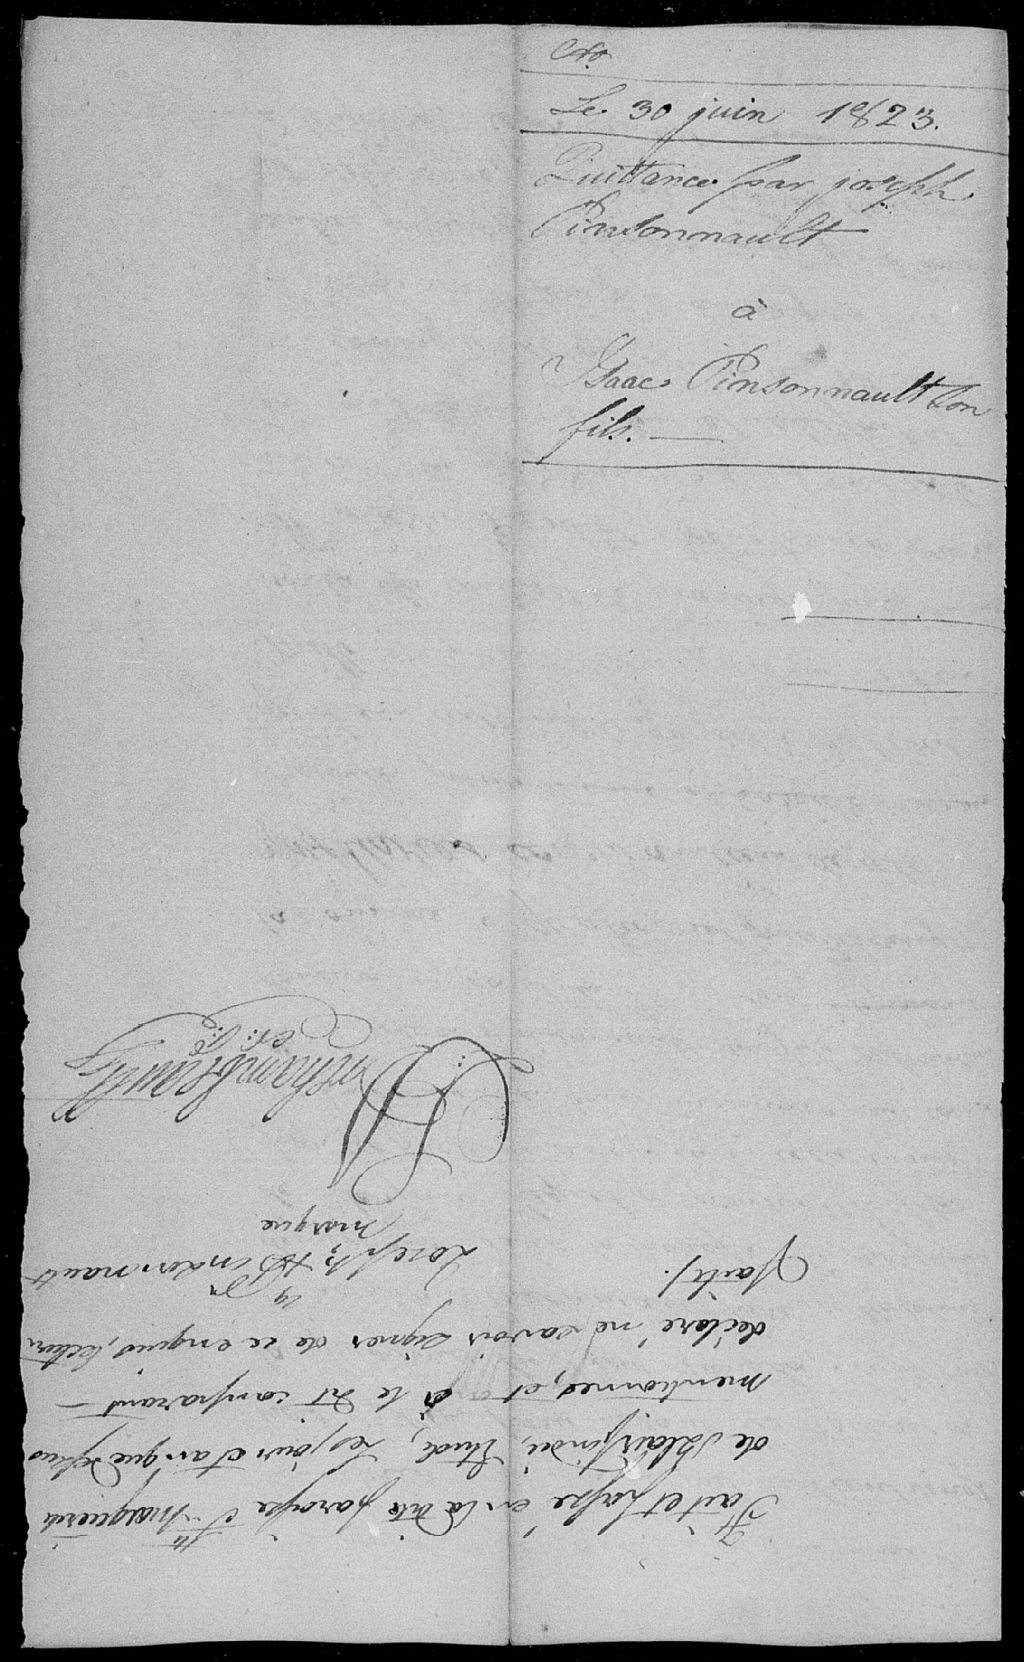 Le 30 juin 1823.
Quittance par joseph
Pinsonnault
à
Isaac Pinsonnault son
fils.
Fait et passé en la dite paroisse Ste Marguerite
de Blairfindie, Etude, Les jour et an que dessus
mentionnés, et a le dit comparant
déclaré ne savoir signer de ce enquis, lecture
faite.
sa
Joseph + Pinsonnault
marque
Archambeault
N: P: